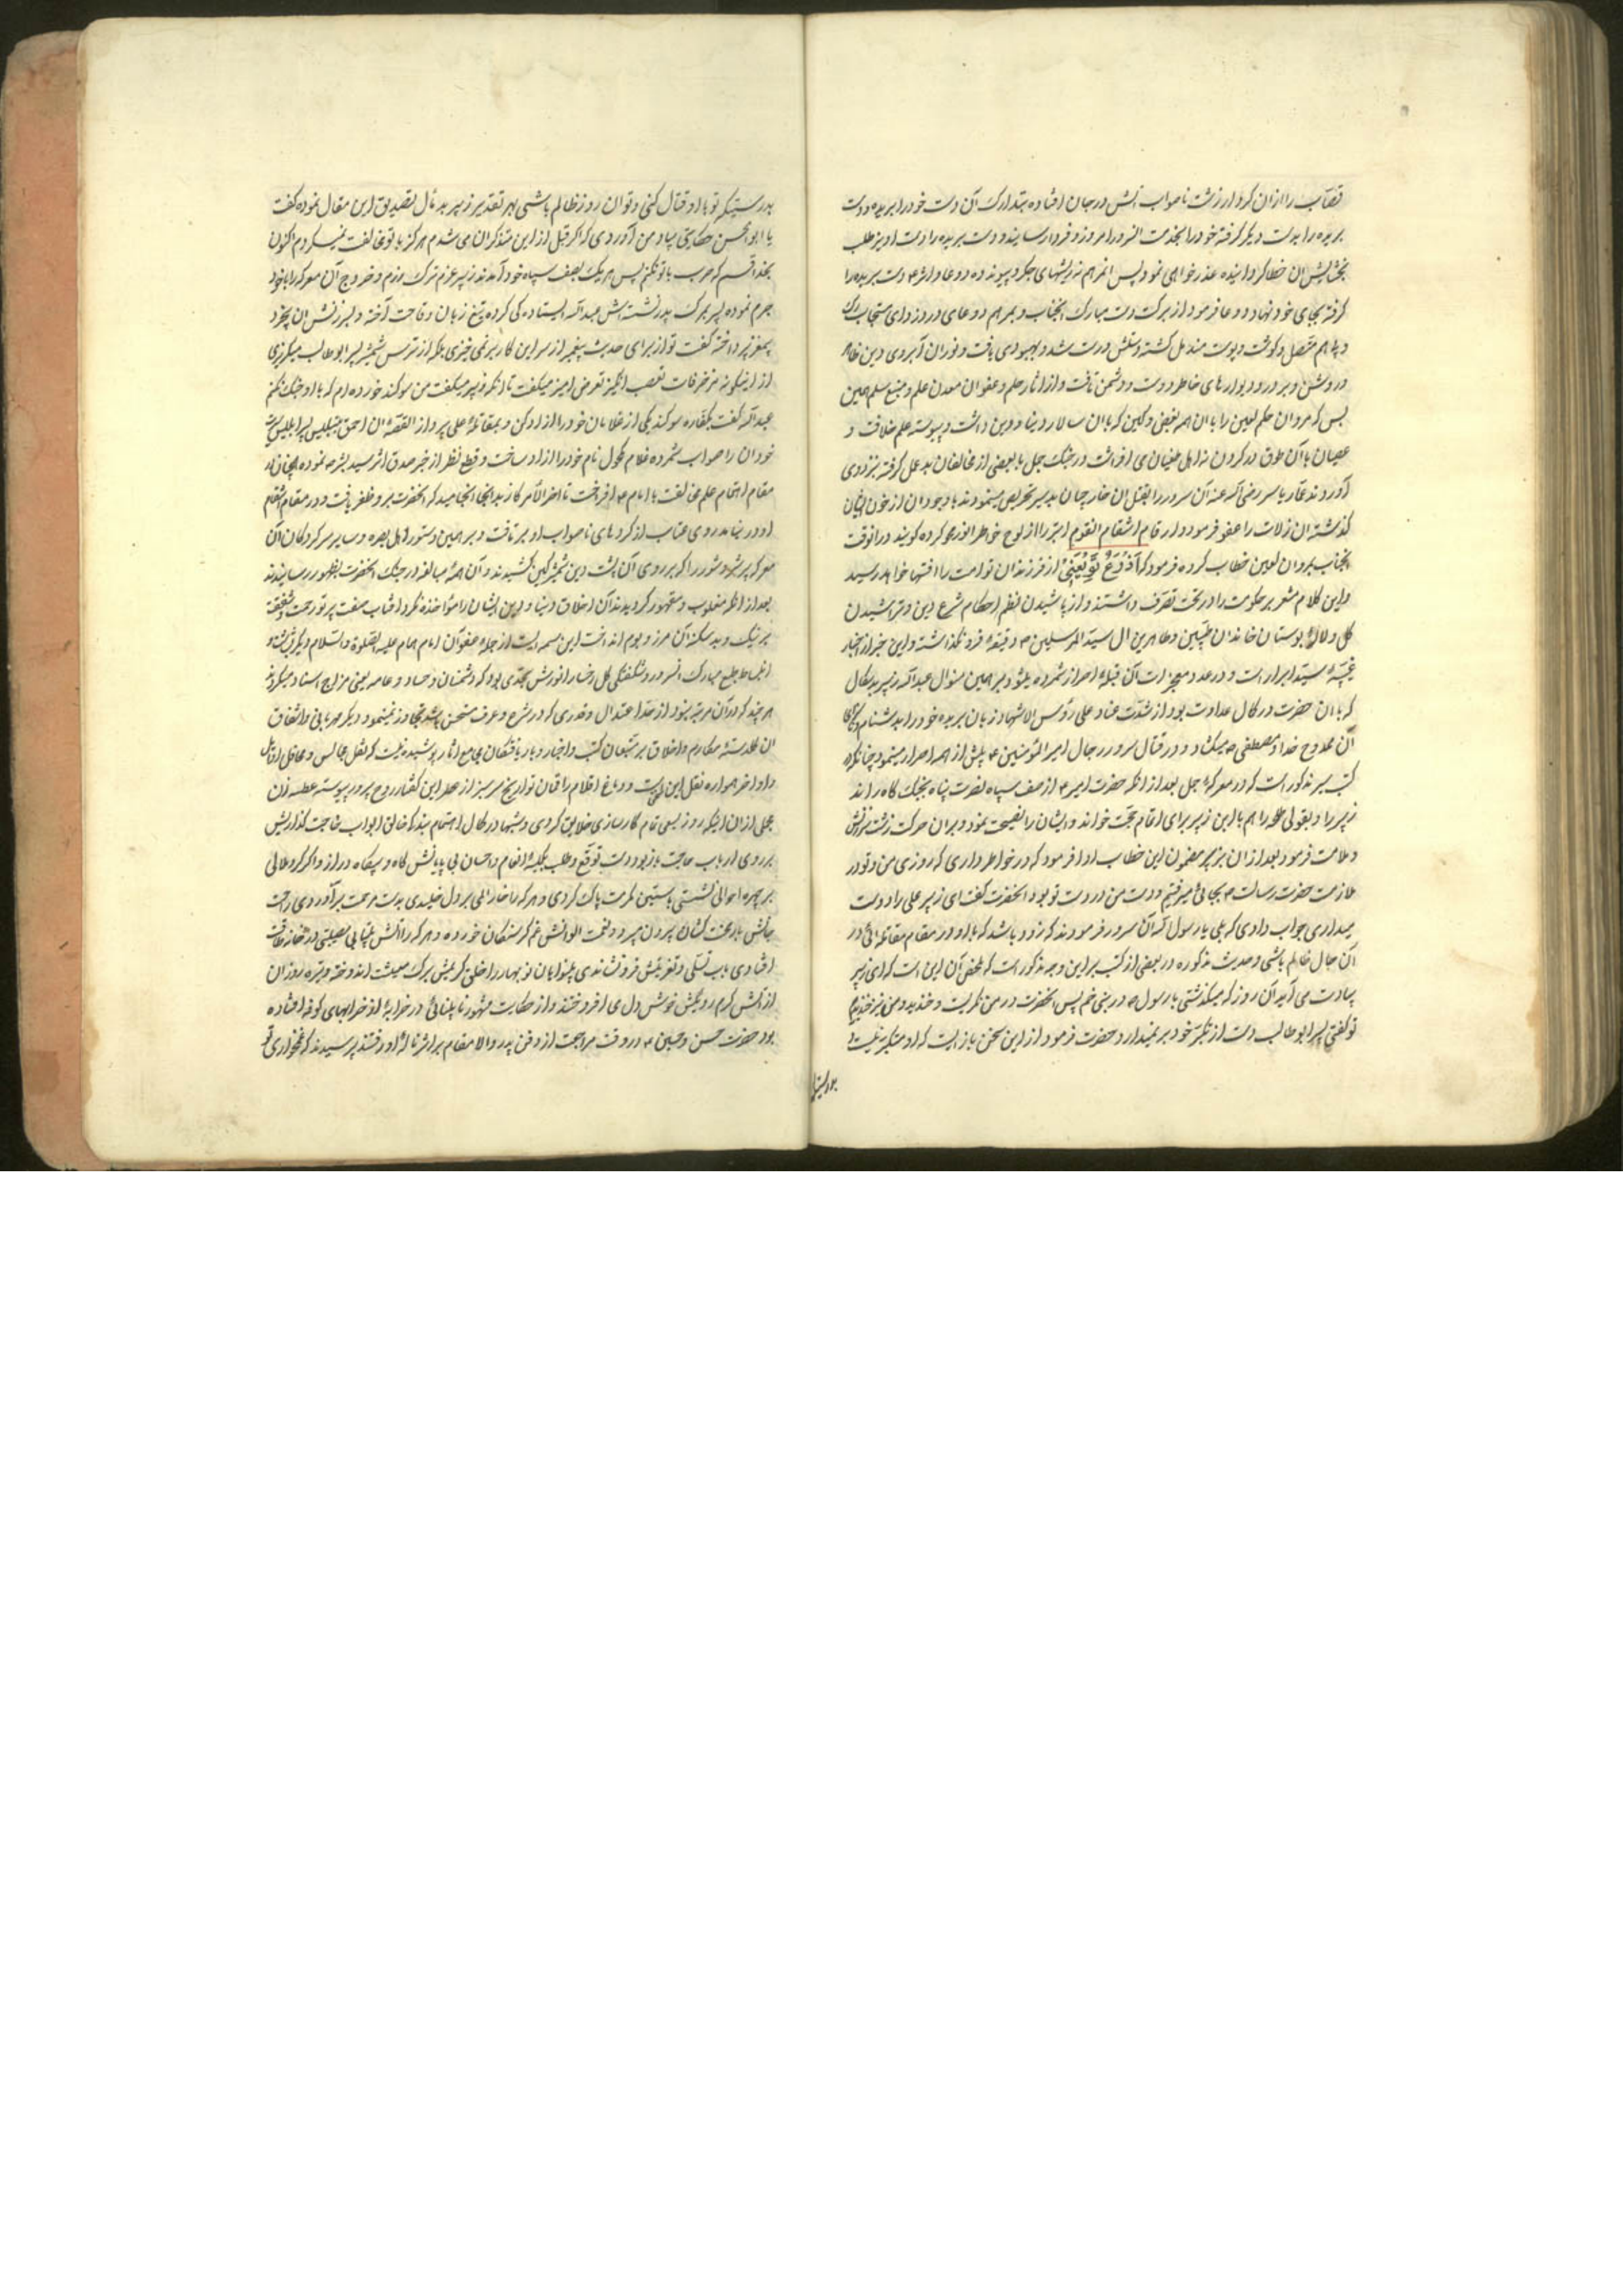 قصاب را ازان کردار زشت ناصواب آتش در جان افتاده بتدارک آن دست خود را بریده و دست
بریده را بدست دیگر گرفته خود را بخدمت آنسرور امروز و فردا رسانید و دست بریده را دست اویز طلب
بخشایش آن خطا کردانیده عذر خواهی نمود پس
گرفته بجای خود نهاد و دعا فرمود از برکت دست مبارک انجناب و بمرهم دوعای
و باهم متصل و کوفت و پوست مندمل کشته دستش درست شد و بهبودی یافت و نور آن آبروی دین
در و دیوارهای خاطر دوست و دشمن تافت و از اثار حلم و عفو ان معدن علم و منبع سلم همین
بس که مروان حکم لعین را با ان همه بغض و کین که با ان سالار دنیا و دین داشت و پیوسته علم خلافت و
عصیان با آن طوق در کردن اهل طغیان می افراشت در جنک جمل با بعضی از مخالفان بد عمل گرفته نزد وی
آوردند عمار یاسر رضی الله عنه آن سرور را بقتل ان خارجیان بد سیر تحریص مینمودند با وجود ان از خون ایشان
کذشته ان زلات را عفو فرمود و ارقام انتقام القوم ابتر را از لوح خاطر انور محو کرده کویند در انوقت
انجناب بمروان لعین خطاب کرده فرمود که از فرزندان تو امت را افتها خواهد رسید
و این کلام مشعر بر حکومت را در تحت تصرف داشتند و از پاشیدن نظم احکام شرع دین و تراشیدن
کل و لاله بوستان خاندان طیبین و طاهرین ال سید المرسلین دقیقه فرو نکذاشته و این خبر از اخبار
غیبیه سید ابرار است و در عدد معجزات آن قبله احرار شمرده میشود و بر همین منوال عبدالله زبیر بد سکال
که با ان حضرت در کمال عداوت بود از شدت عناد علی رؤس الاشهاد زبان بریده خود را بدشنام
آن ممدوح خدا و مصطفی میکشاد و در قتال سرور رجال امیر المؤمنین پیش از همه اصرار مینمود چنانکه در
کتب سیر مذکور است که در معرکه جمل بعد از انکه حضرت امیر از صف سپاه نصرت پناه بجنک کاه راند
زبیر را و بقولی طلحه را هم با این زبیر برای اتمام حجت خواند و ایشان را نصیحت نمود و بران حرکت زشت سرزنش
و ملامت فرمود بعد ازان بزبیر مضمون این خطاب ادا فرمود که در خواطر داری که روزی من و تو در
ملازمت حضرت رسالت بجائی میرفتیم و دست من در دست تو بود انحضرت کفت ای زبیر علی را دوست
میداری جواب دادی که بلی یا رسول الله آن سرور فرمودند که زود باشد که با او در مقام مقاتله ائی و در
آن حال ظالم باشی و حدیث مذکوره در بعضی از کتب بر این وجه مذکور است که ملخص آن این است که ای زبیر
بیادت می آید آن روز که میکذشتی با رسول در بنی غنم پس انحضرت در من نکریست و خندید و من نیز خندیدم
تو کفتی پسر ابوطالب دست از تکبر خود بر نمیدارد حضرت فرمود از این سخن باز ایست که او متکبر نیست
بدرستیکه
بدرستیکه تو با او قتال کنی و تو ان روز ظالم باشی بهر تقدیر زبیر بد مأل تصدیق این مقال نموده کفت
یا ابو الحسن حکایتی بیاد من آوردی که اکر قبل از این متذکر ان می شدم هرکز با تو مخالفت نمیکردم اکنون
بخدا قسم که حرب با تو نکنم پس هر یک بصف سپاه خود آمدند زبیر عزم ترک رزم و خروج آن معرکه را با خود
جزم نموده پسر بمرک پدر نشسته اش عبدالله ایستاده کی کرده تیغ زبان وقاحت آخته و بسرزنش ان
پرداخته کفت تو از برای حدیث پیغمبر از سر این کار بر نمی خیزی بلکه از ترس شمشیر پسر ابوطالب میکریزی
از اینکونه مزخرفات تعصب انکیز تعرض امیز میکفت تا انکه زبیر میکفت من سوکند خورده ام که با او جنک نکنم
عبدالله کفت بکفاره سوکند یکی از غلامان خود را ازاد کن و بمقاتله علی پرداز القصه ان احمق
خود ان را صواب شمرده غلام مکحول نام خود را ازاد ساخت و قطع نظر از خبر صدق اثر سید بشر نموده
مقام اهتمام علم مخالفت با امام افراخت تا اخر الامر کار بد انجا انجامید که انحضرت بر وظفر یافت و در مقام انتقام
او در نیامد روی عتاب از کردهای ناصواب او بر تافت و بر همین دستور اهل بصره و سایر سرکردکان آن
معرکه پر شر و شور را که بر روی آن پشت دین شمشیر کین کشیدند و آن همه مبالغه در جنک انحضرت بظهور رسانیدند
بعد از انکه مغلوب و مقهور کردیدند آن اخلاق دنیا و دین ایشان را مؤاخذه نکرد افتاب صفت پرتو رحمت و شفقت
بر نیک و بد سکنه آن مرز و بوم انداخت این از جمله عفو آن امام همام علیه الصلوة والسلام
انبساط طبع مبارک آنسرور و شکفتکی کل رخسار انورش بحدی بود که دشمنان و حساد و عامه یعنی مزاج اسناد میکردند
هر چند که در آن مرتبه نبود از حد اعتدال و قدری که در شرع و عرف مستحسن باشد تجاوز نمینمود دیکر مهربانی و اشفاق
ان کلدسته مکارم و اخلاق بر متتبعان کتب و اخبار و باریافتکان مجامع اثار پوشیده نیست که نقل مجالس و محافل
و اواخر همواره نقل این است و دماغ اقلام راقمان تواریخ سیر از عطر این کفتار روح پرور پیوسته عطسه زن
مجملی از ان اینکه روز بسعی تمام کارسازی خلایق کردی و شبها در کمال اهتمام بندکی خالق ابواب حاجت کذاریش
بر روی ارباب حاجت باز بود و دست توقع و طلب بکیسه انعام و احسان بی پایانش کاه و بیکاه دراز و اکر کرد ملالی
بر چهره احوالی نشستی باستین مکرمت پاک کردی و هر که را خار المی بر دل خلیدی بدست مرحمت بر آوردی راحت
جانش بار محنت کشان بیرون میبرد و نعمت الوانش غم کرسنکان خورده و هر که را آتش بیتابی مصیبتی در خانه طاقت
افتادی باب تسلی و تعزیتش فرو نشاندی بینوایان نو بهار را خلق کریمش برک معیشت اندوخته و تیره روزان
از آتش کرم رویش خوش دل می افروختند و از حکایت مشهور نابینائی در خرابه از خرابهای کوفه افتاده
بود حضرت حسن و حسین در وقت مراجعت از دفن پدر والا مقام بر اثر ناله او رفتند پرسیدند که غمخواری تو